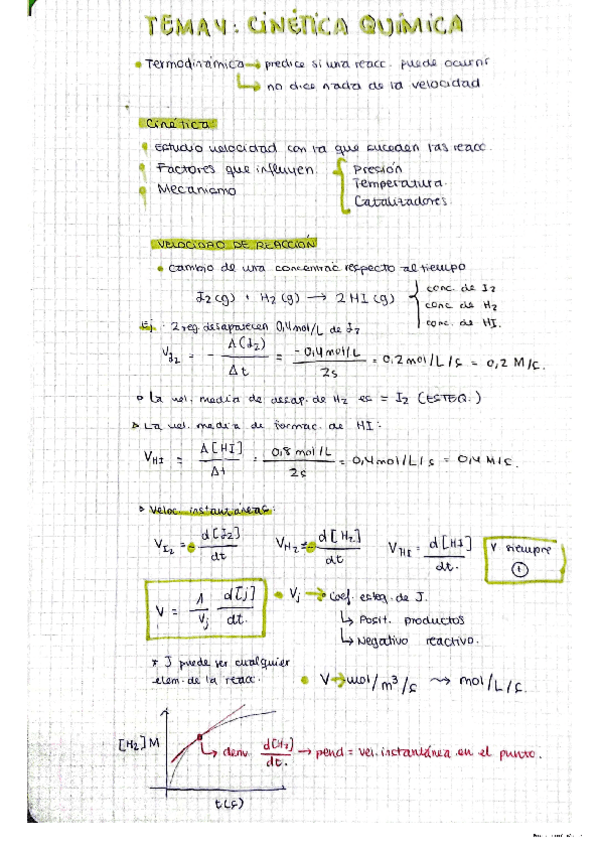 TEMA 4: CINÉTICA QUÍMICA
• Termodinámica → predice si una reacc. puede ocurrir
↳ no dice nada de la velocidad
Cinética:
Estudio velocidad con la que suceden las reacc.
Factores que influyen { Presión
Temperatura.
Catalizadores.
Mecanismo
VELOCIDAD DE REACCIÓN
• Cambio de una concentrac respecto al tiempo
I2(g) + H2(g) → 2 HI(g) { conc. de I2
conc. de H2
conc. de HI.
Ej: 2 seg desaparecen 0,4mol/L de I2
V_I2 = - Δ(I2) / Δt = -0,4mol/L / 2s = 0,2mol/L/s = 0,2 M/s.
▹ La vel. media de desap. de H2 es = I2 (ESTEQ.)
▹ La vel. media de formac. de HI:
V_HI = Δ[HI] / Δt = 0,8 mol/L / 2s = 0,4mol/L/s = 0,4 M/s.
▹ Veloc. instantáneas:
V_I2 = - d[I2] / dt V_H2 = - d[H2] / dt V_HI = d[HI] / dt. V siempre ⊕
V = 1/Vj d[j] / dt. • Vj → Coef. esteq. de J.
↳ Posit. productos
↳ Negativo reactivo.
* J puede ser cualquier
elem. de la reacc. • V → mol/m³/s ⇝ mol/L/s.
[H2] M
↳ deriv. d[H2] / dt. → pend = vel. instantánea en el punto.
t(s)